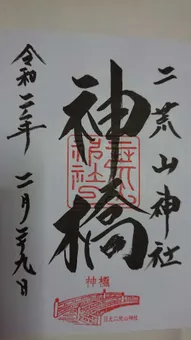 二荒山神社
神橋
令和二年二月二十九日
神橋
日光二荒山神社